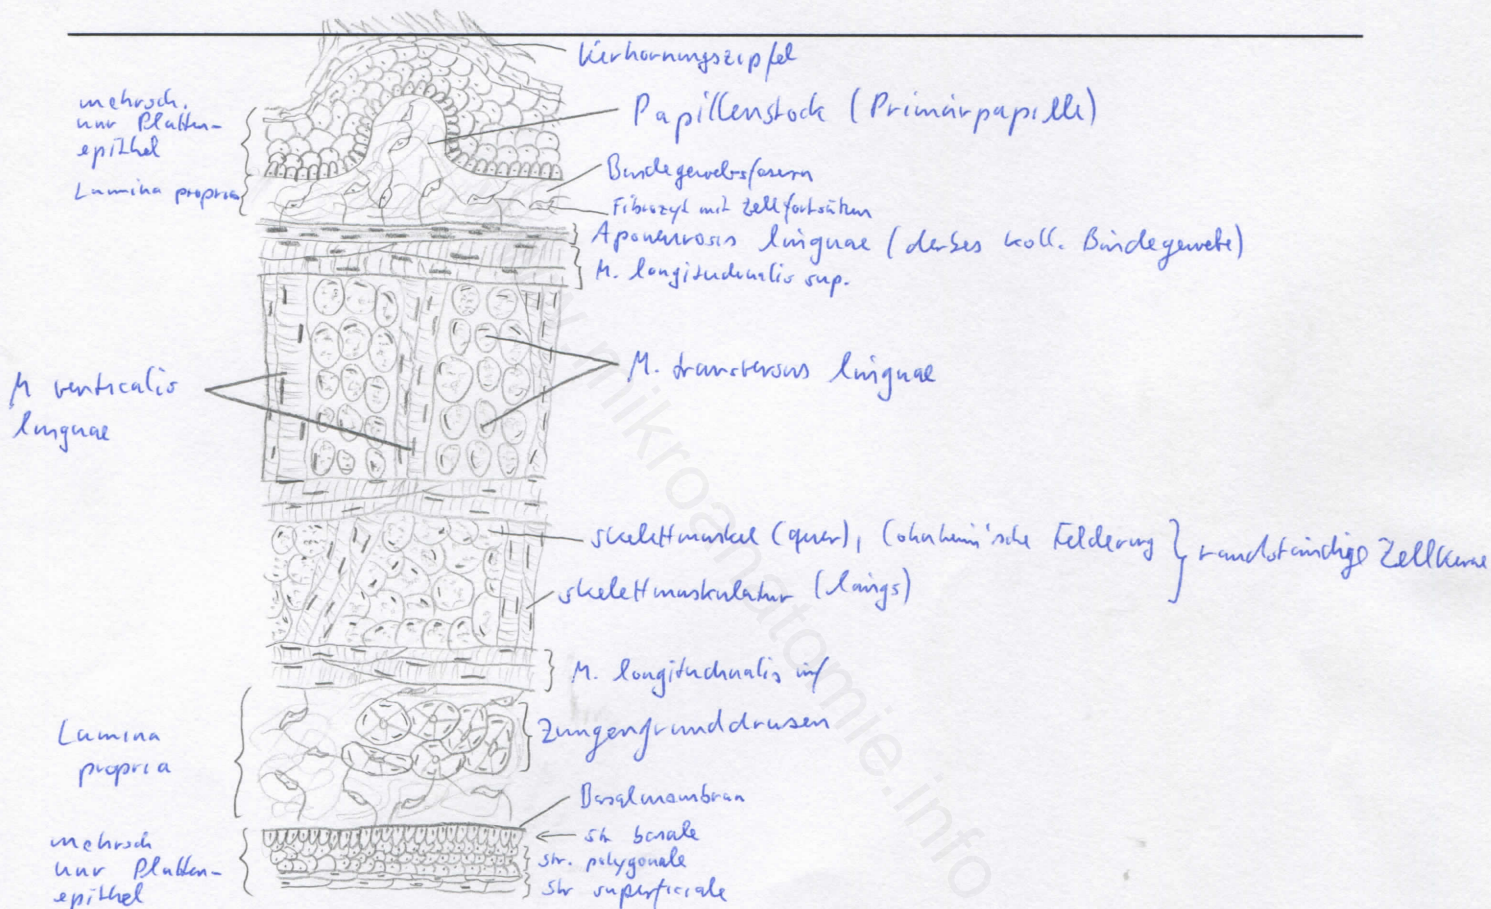 Verhornungszipfel
mehrsch.
unv Platten-
epithel
Papillenstock (Primärpapille)
Lamina propria
Bindegewebsfasern
Fibrozyt mit Zellfortsätzen
Aponeurosis linguae (derbes koll. Bindegewebe)
M. longitudinalis sup.
M verticalis
linguae
M. transversus linguae
Skelettmuskel (quer), Cohnheim'sche Felderung
randständige Zellkerne
Skelettmuskulatur (längs)
M. longitudinalis inf
Lamina
propria
Zungengrunddrüsen
Basalmembran
mehrsch
unv Platten-
epithel
str basale
str. polygonale
str superficiale
mikroanatomie.info